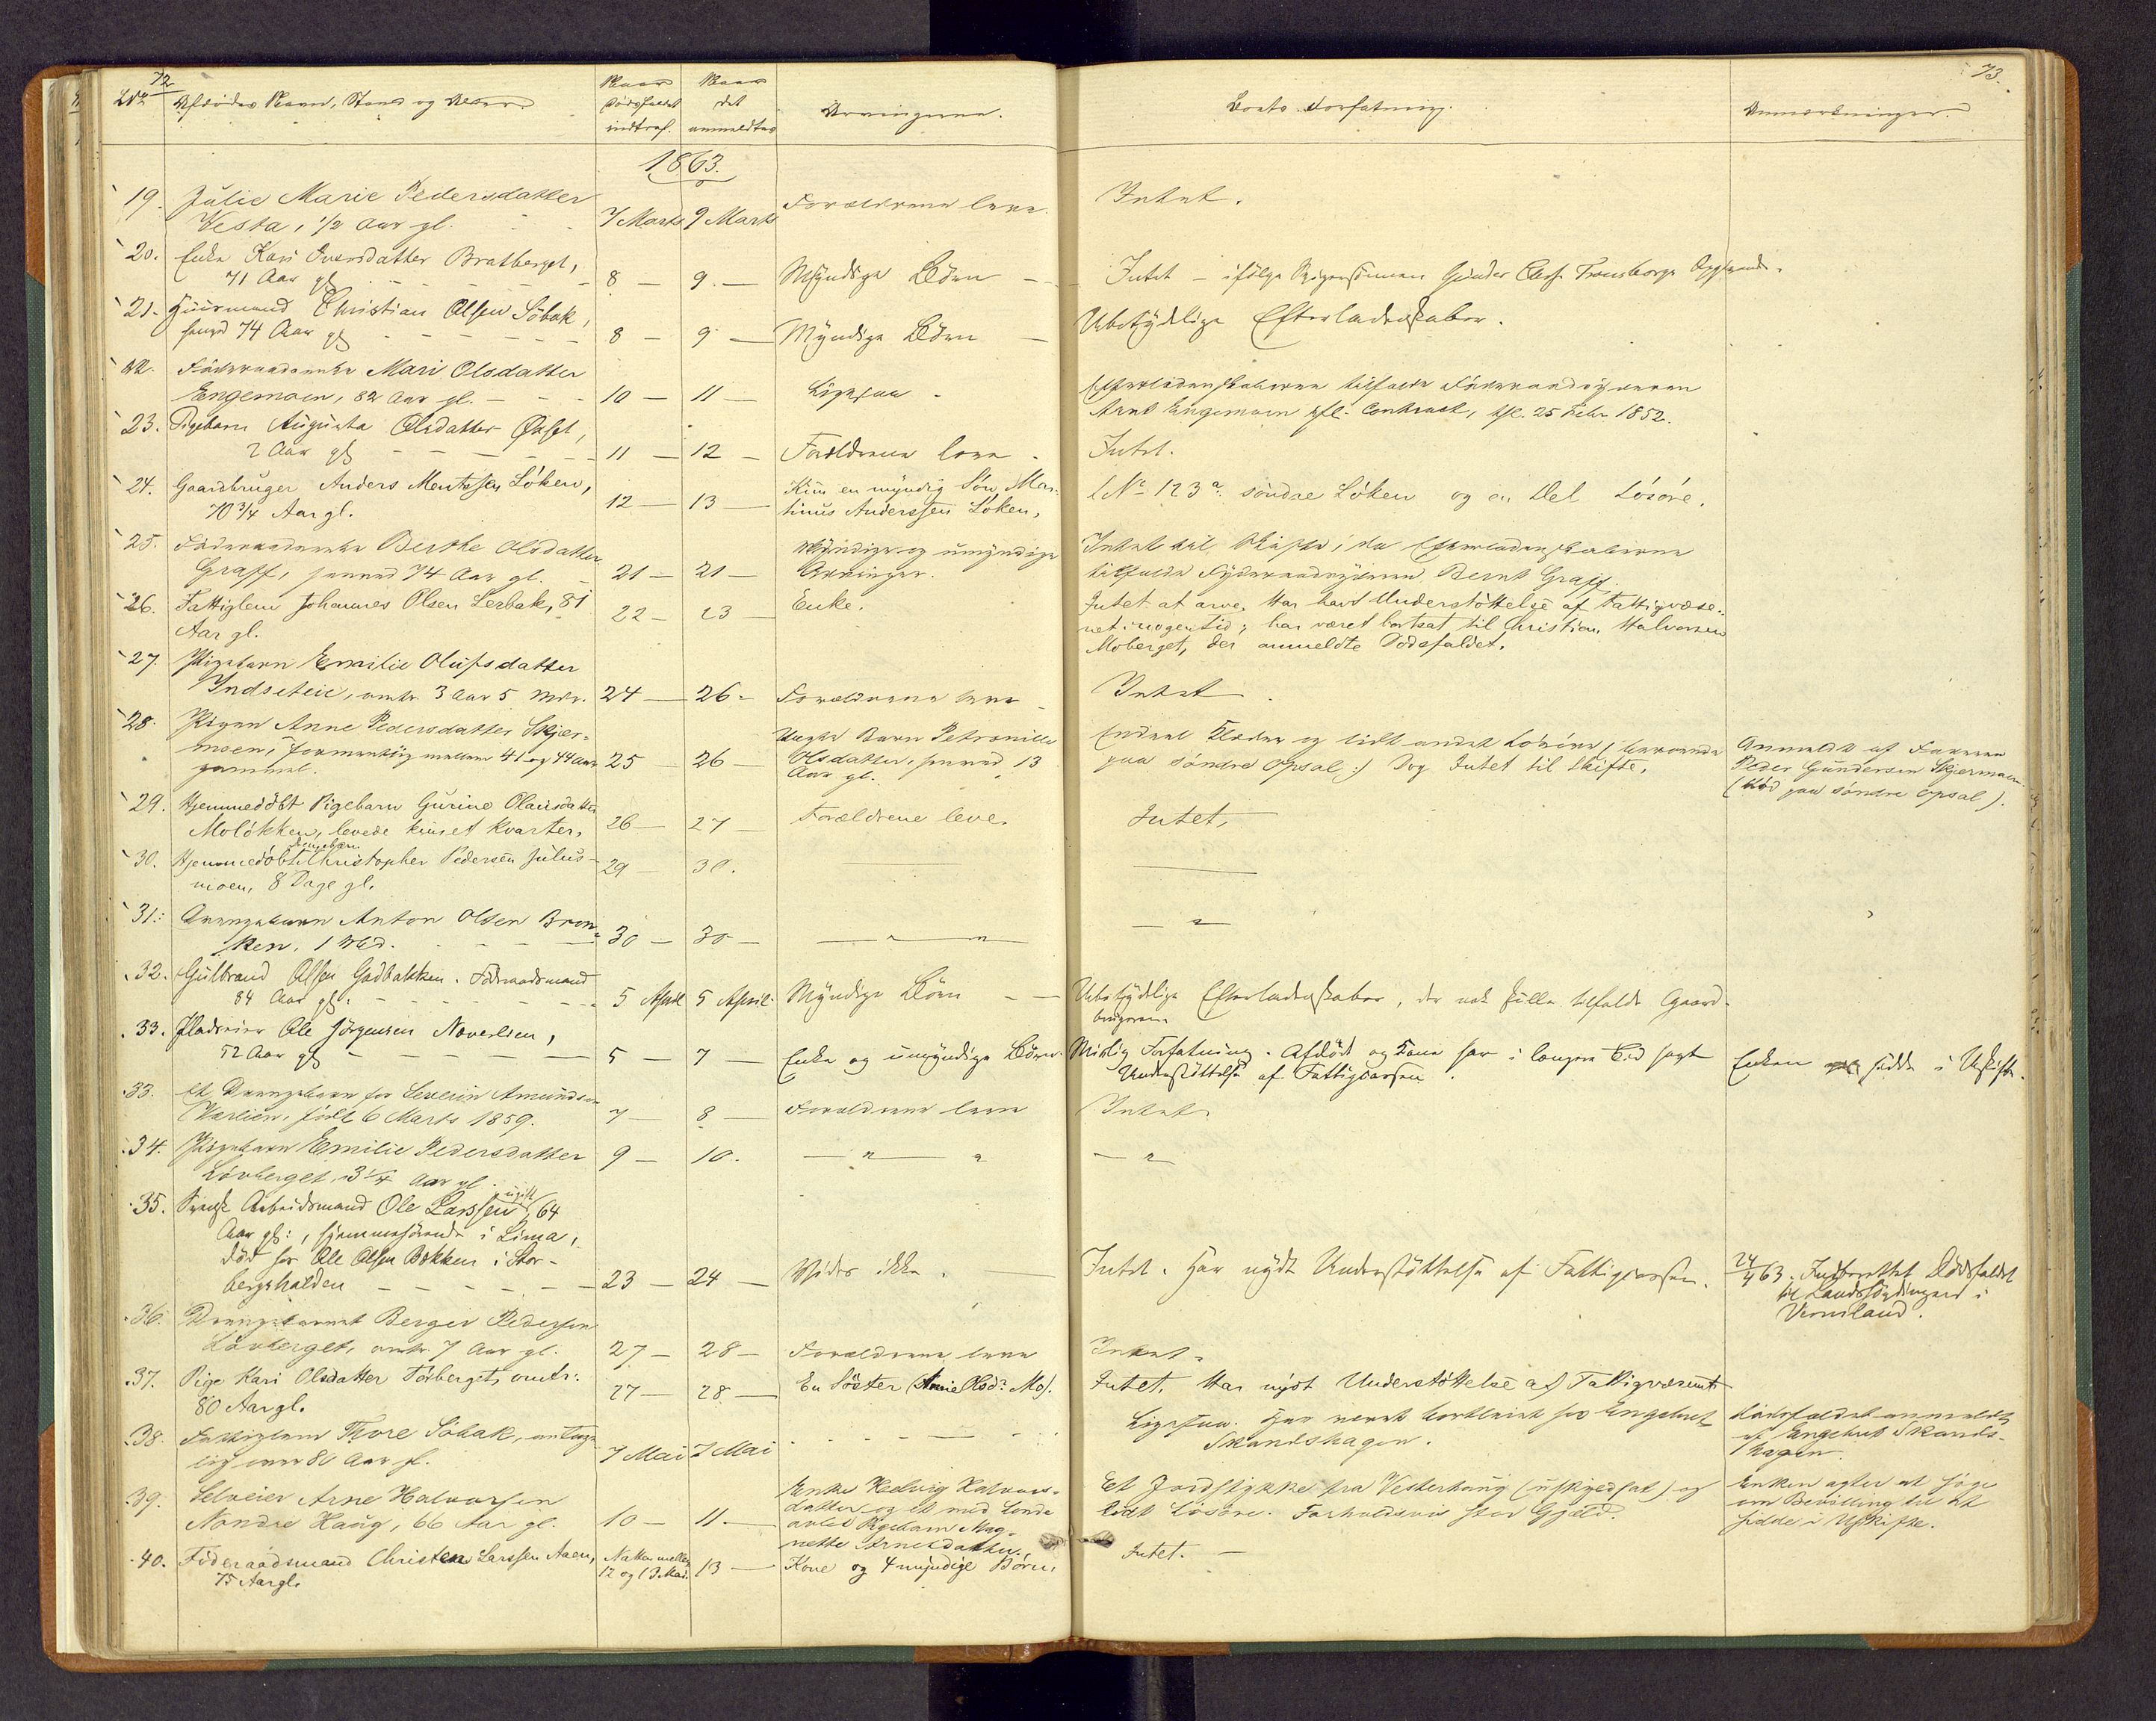 72
Afdødes Navn, Stand og Alder.
Naar Dødsfaldet indtraf.
Naar det anmeldtes
Arvingerne.
Boets Forfatning.
Anmærkninger.
73.
1863.
19. Julie Marie Pedersdatter
Vesta, 1/2 Aar gl. 7 Marts 9 Marts Forældrene leve. Intet.
20. Enke Kari Iversdatter Bratberget,
71 Aar gl. 8 — 9 — Myndige Børn — Intet — ifølge
21. Huusmand Christian Olsen Søbak,
74 Aar gl. 8 — 9 — Myndige Børn — Ubetydelige Efterladenskaber.
22. Føderaadsenke Mari Olsdatter
Engemoen, 82 Aar gl. — 10 — 11 — Ligesaa Efterladenskaberne tilfalde Føderaadsyderen
Arnt Engemoen efl. Contract, thl. 25 Febr. 1852.
23. Pigebarn Augusta Olsdatter
2 Aar gl. 11 — 12 — Forældrene leve. Intet.
24. Gaardbruger Anders Mentzsen Løken,
70 3/4 Aar gl. 12 — 13 — Kun en myndig Søn, Mar-
tinus Anderssen Løken, LNo 123a søndre Løken og en Del Løsøre.
25. Føderaadsenke Berthe Olsdatter
Graff, 74 Aar gl. 21 — 21 — Myndige og umyndige
Arvinger. Intet til Skifte, da Efterladenskaberne
tilfalde Føderaadsyderen Bernt Graff.
26. Fattiglem Johannes Olsen Lerbak, 81
Aar gl. 22 — 23 — Enke. Intet at arve. Har havt Understøttelse af Fattigvæse-
net i nogen Tid; har været bortsat til Christian Halvorsen
Moberget, der anmeldte Dødsfaldet.
27. Pigebarn Emilie Olufsdatter
Indseteie, omtr. 3 Aar 5 Mdr. 24 — 26 — Forældrene leve Intet
28. Pigen Anne Pedersdatter Skjær-
moen, formentlig mellem 41 og 44 Aar
gammel. 25 — 26 — Uægte Barn Petronille
Olsdatter, 13
Aar gl. Endeel Klæder og lidt andet Løsøre (beroende
paa søndre Opsal:) Dog Intet til Skifte. Anmeldt af Faderen
Peder Gundersen Skjærmoen
(død paa søndre Opsal).
29. Hjemmedøbt Pigebarn Gurine Olausdatter
Moløkken, levede kun et Kvarter. 26 — 27 — Forældrene leve. Intet.
30. Hjemmedøbt Drengebarn Christopher Pedersen Julus-
moen, 8 Dage gl. 29 — 30.
31. Drengebarn Anton Olsen Bron-
ken, 1 Md. 30 — 30 — — " — " — — " —
32. Gulbrand Olsen Godbakken. Føderaadsmand
84 Aar gl. 5 April 5 April Myndige Børn — Ubetydelige Efterladenskaber, der nok skulle tilfalde Gaard-
brugeren
33. Pladseier Ole Jørgensen Noverlien,
52 Aar gl. 5 — 7 — Enke og umyndige Børn. Mislig Forfatning. Afdøde og Kone har i længere Tid havt
Understøttelse af Fattigvæsen. Enken sidder i Uskifte.
33. Et Drengebarn for Severin Amundsen
født 6 Marts 1859. 7 — 8 — Forældrene leve Intet.
34. Pigebarn Emilie Pedersdatter
Løvberget, 3 1/4 Aar gl. 9 — 10. — " — " — " —
35. Svensk Arbeidsmand Ole Larssen, ugift, 64
Aar gl:, hjemmehørende i Lima,
død hos Ole Olsen Bakken i Stor-
bergshalden — 23 — 24 — Vides ikke. — Intet. Har nydt Understøttelse af Fattigvæsen. 24/4 63. Indberettet Dødsfaldet
til Landshøvdingen i
Vermland.
36. Drengebarnet Berger Pedersen
Løvberget, omtr. 7 Aar gl. 27 — 28 — Forældrene leve Intet.
37. Pige Kari Olsdatter Torberget, omtr.
80 Aar gl. 27 — 28 — En Søster (Marie Olsdr Mo). Intet. Har nydt Understøttelse af Fattigvæsent.
38. Fattiglem Thore Søbak, antage-
lig over 80 Aar gl. 7 Mai 7 Mai Ligesaa. Har været bortleiet hos Engebret
Skandshagen. Dødsfaldet anmeldt
af Engebret Skands-
hagen.
39. Selveier Arne Halvorsen
Nordre Haug, 66 Aar gl. 10 — 11 — Enke Hedvig Halvors-
datter og et med hende
avlet Pigebarn Mag-
nette Arnesdatter. Et Jordstykke fra Vesterhaug (uskyldsat) og
lidt Løsøre. Forholdsvis stor Gjæld. Enken agter at søge
om Bevilling til at
sidde i Uskifte.
40. Føderaadsmand Christen Larssen Aaen,
75 Aar gl. Natten mellem
12 og 13 Mai. 13 — Kone og 4 myndige Børn. Intet. —